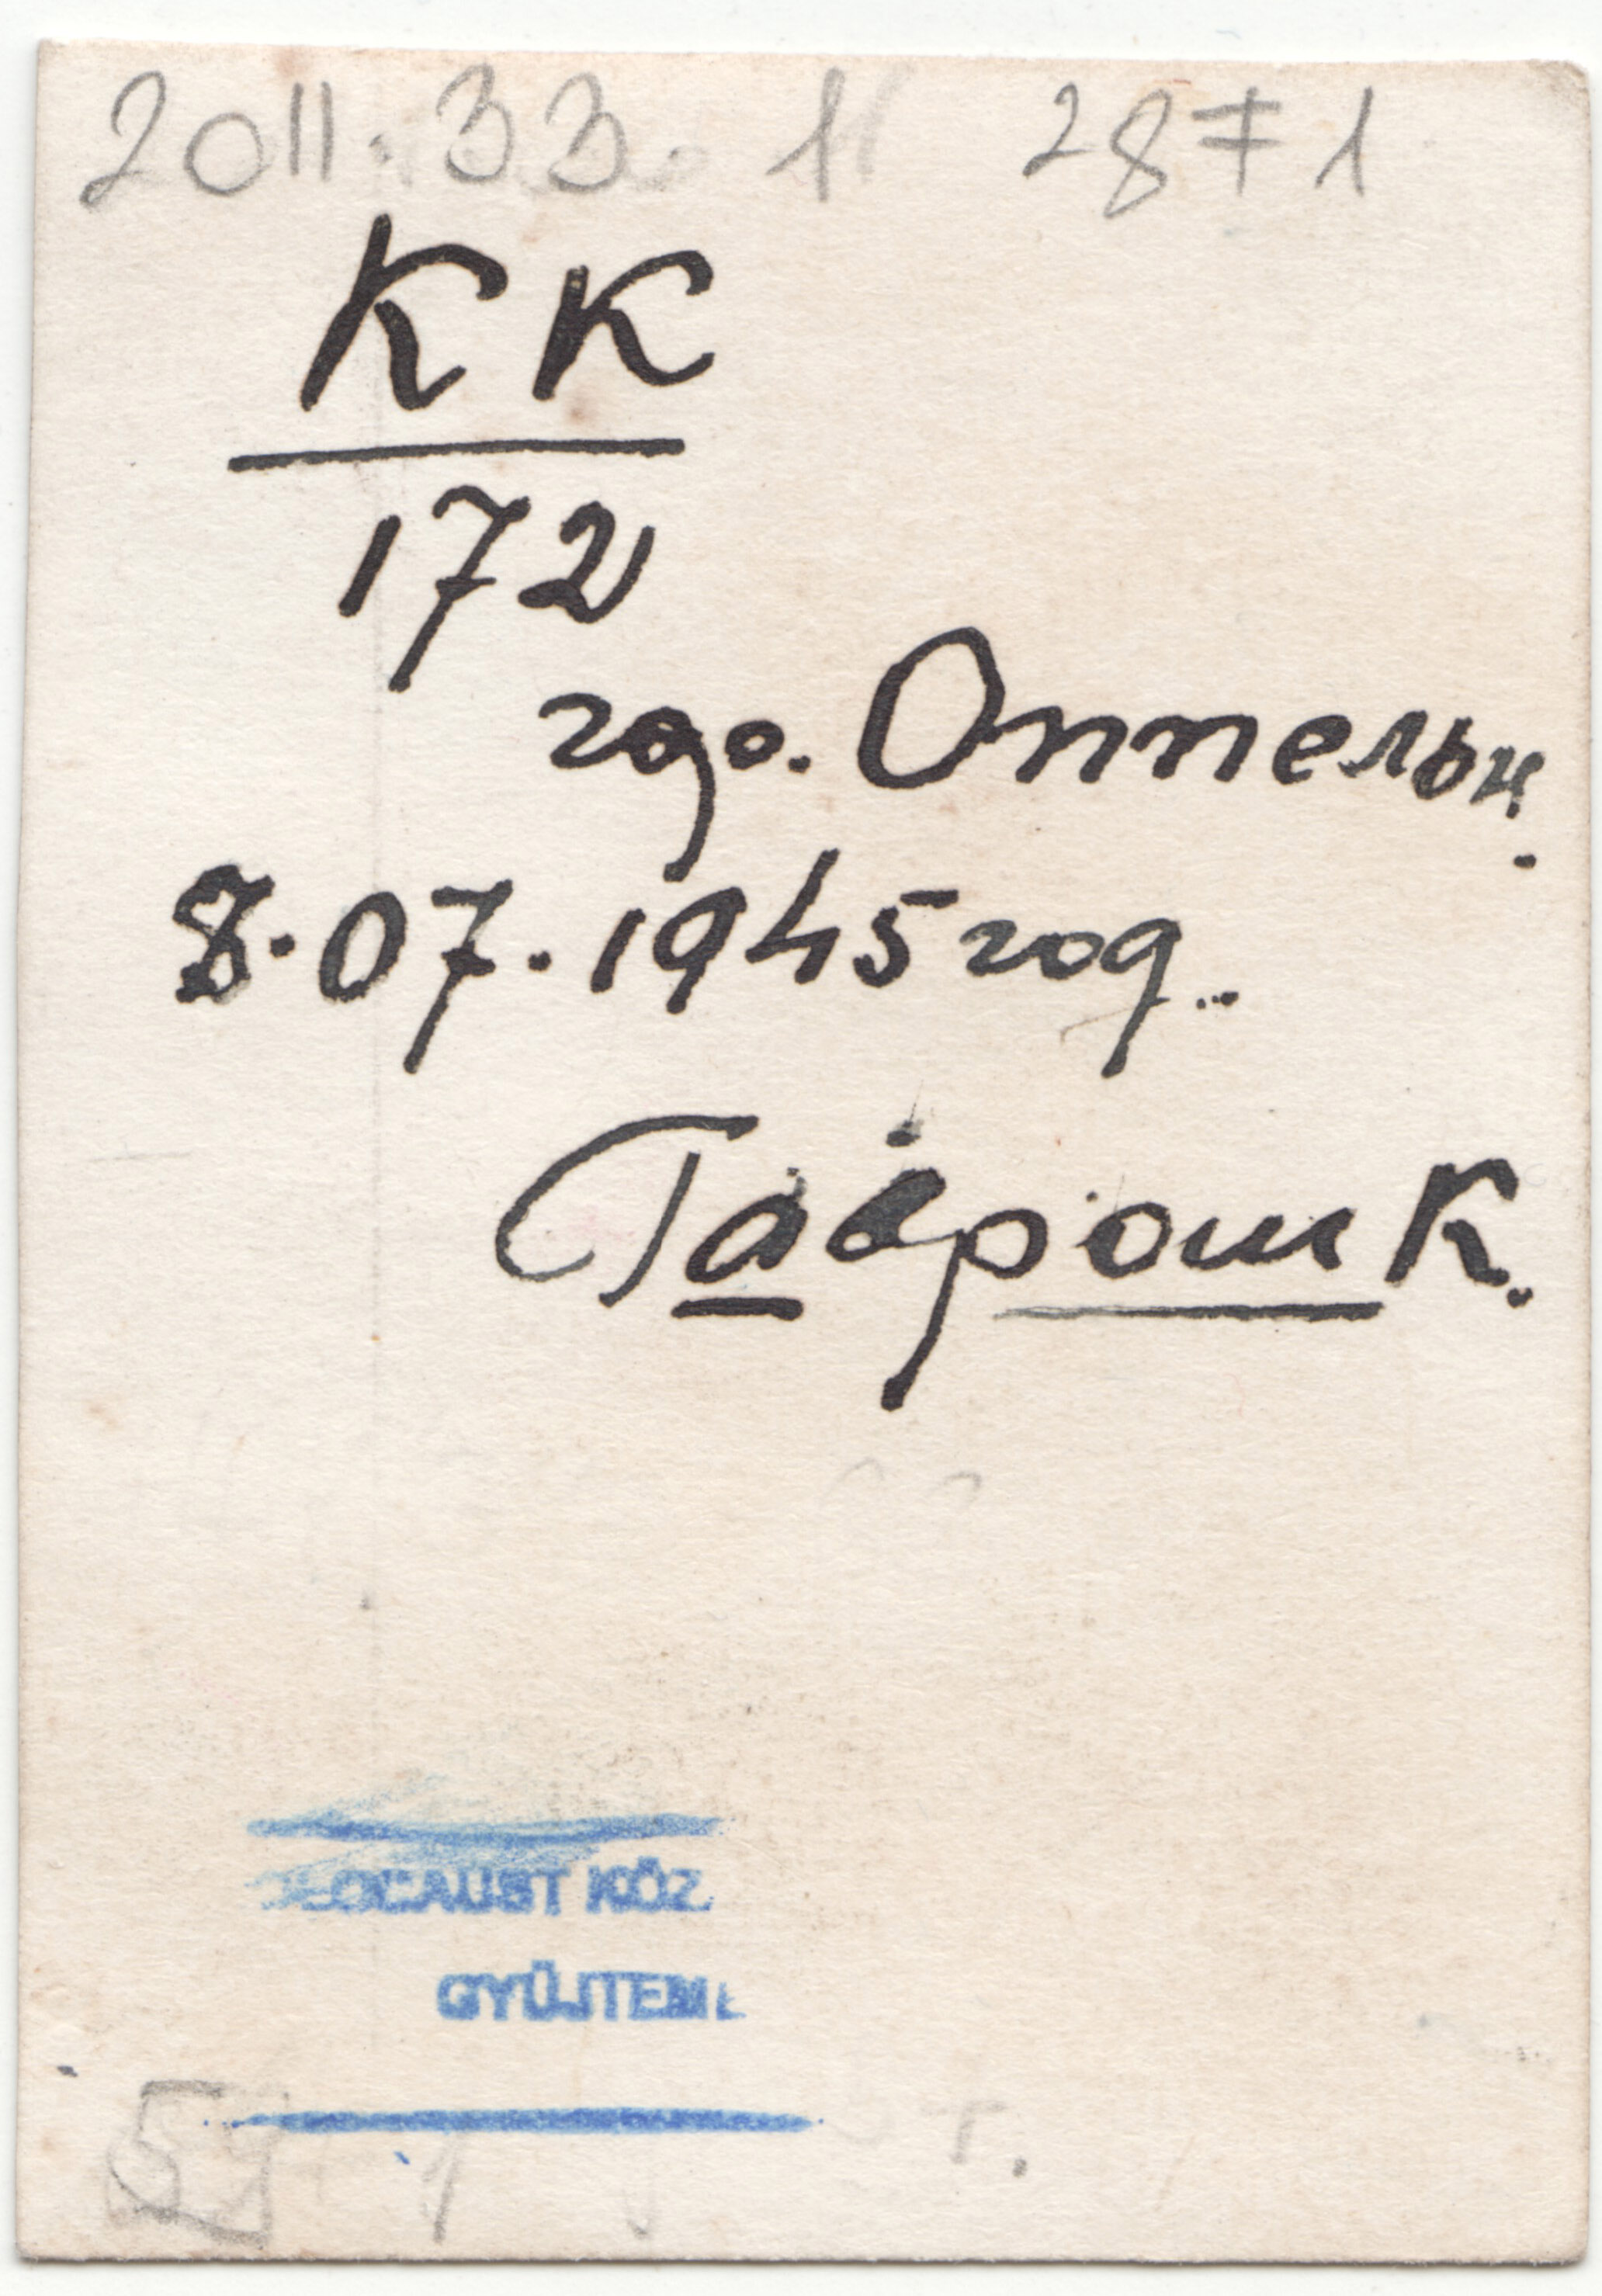 2011.33.1 2871
КК
172
гдо. Оппельн.
8.07.1945 год..
Гаврош К.
HOLOCAUST KÖZ
GYÜJTEMÉ